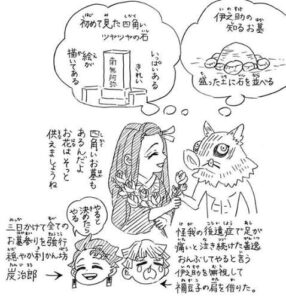 伊之助の
知るお墓
盛った土に石を並べる
初めて見た四角い
ツヤツヤの石
いっぱいある
きれい
絵が
描いてある
南無阿弥
四角いお墓も
あるんだよ
お花はそっと
供えましょうね
三日かけて全ての
お墓参りを強行
穏やか判かん坊
炭治郎
やる
決めたら
やる
怪我の後遺症で足が
痛いと泣き続けた善逸
おんぶしてやると言う
伊之助を無視して
禰豆子の肩を借りた。